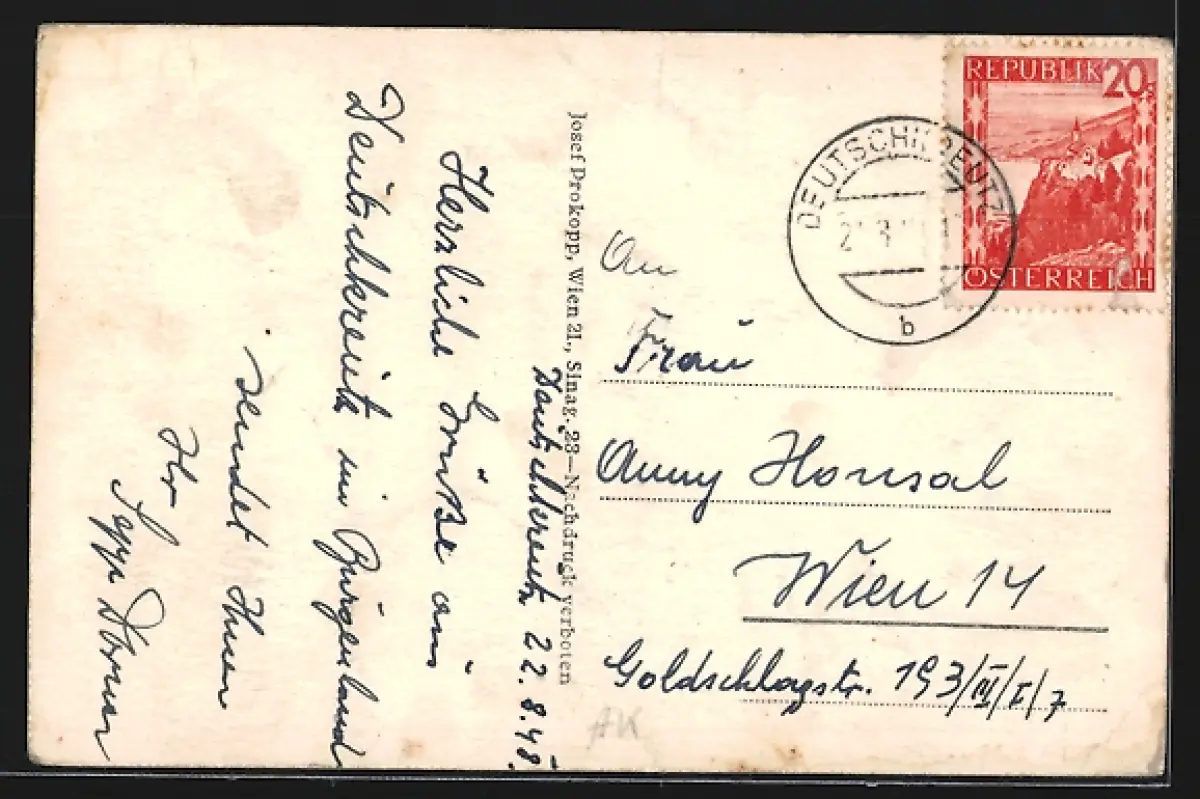 Deutschkreutz 22.8.48.
Herzliche Grüße aus
Deutschkreutz im Burgenland
sendet Ihnen
Ihr
Sepp
Josef Prokopp, Wien 21., Sinag. 23—Nachdruck verboten
REPUBLIK 20g
ÖSTERREICH
DEUTSCHKREUTZ
b
An
Frau
Anny Honsal
Wien 14
Goldschlagstr. 193/III/I/7
AK